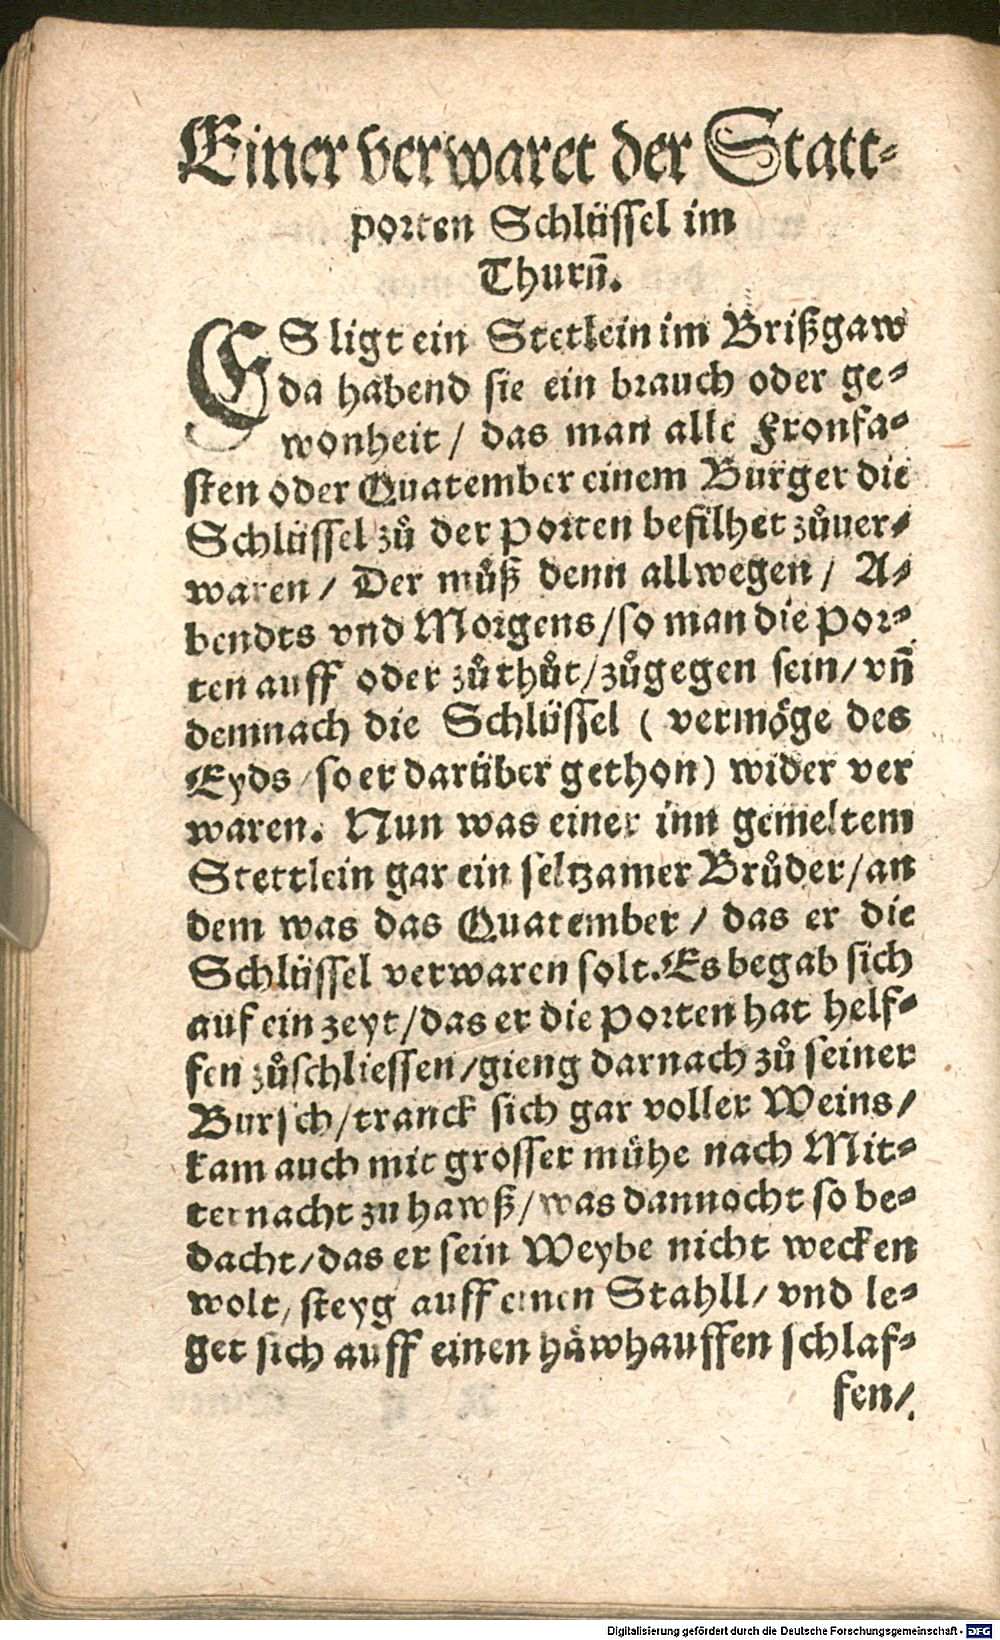 Einer verwaret der Statt-
porten Schlüssel im
Thurn̄.
ES ligt ein Stetlein im Brißgaw
da habend sie ein brauch oder ge-
wonheit / das man alle Fronfa-
sten oder Quatember einem Burger die
Schlüssel zů der porten befilhet zůuer-
waren / Der můß denn allwegen / A-
bendts vnd Morgens / so man die por-
ten auff oder zůthůt / zůgegen sein / vn̄
demnach die Schlüssel ( vermöge des
Eyds / so er darüber gethon) wider ver
waren. Nun was einer inn gemeltem
Stettlein gar ein seltzamer Brůder / an
dem was das Quatember / das er die
Schlüssel verwaren solt. Es begab sich
auf ein zeyt / das er die porten hat helf-
fen zůschliessen / gieng darnach zů seiner
Bursch / tranck sich gar voller Weins /
kam auch mit grosser mühe nach Mit-
ternacht zu hawß / was dannocht so be-
dacht / das er sein Weybe nicht wecken
wolt / steyg auff einen Stahll / vnd le-
get sich auff einen håwhauffen schlaf-
fen /
Digitalisierung gefördert durch die Deutsche Forschungsgemeinschaft - DFG